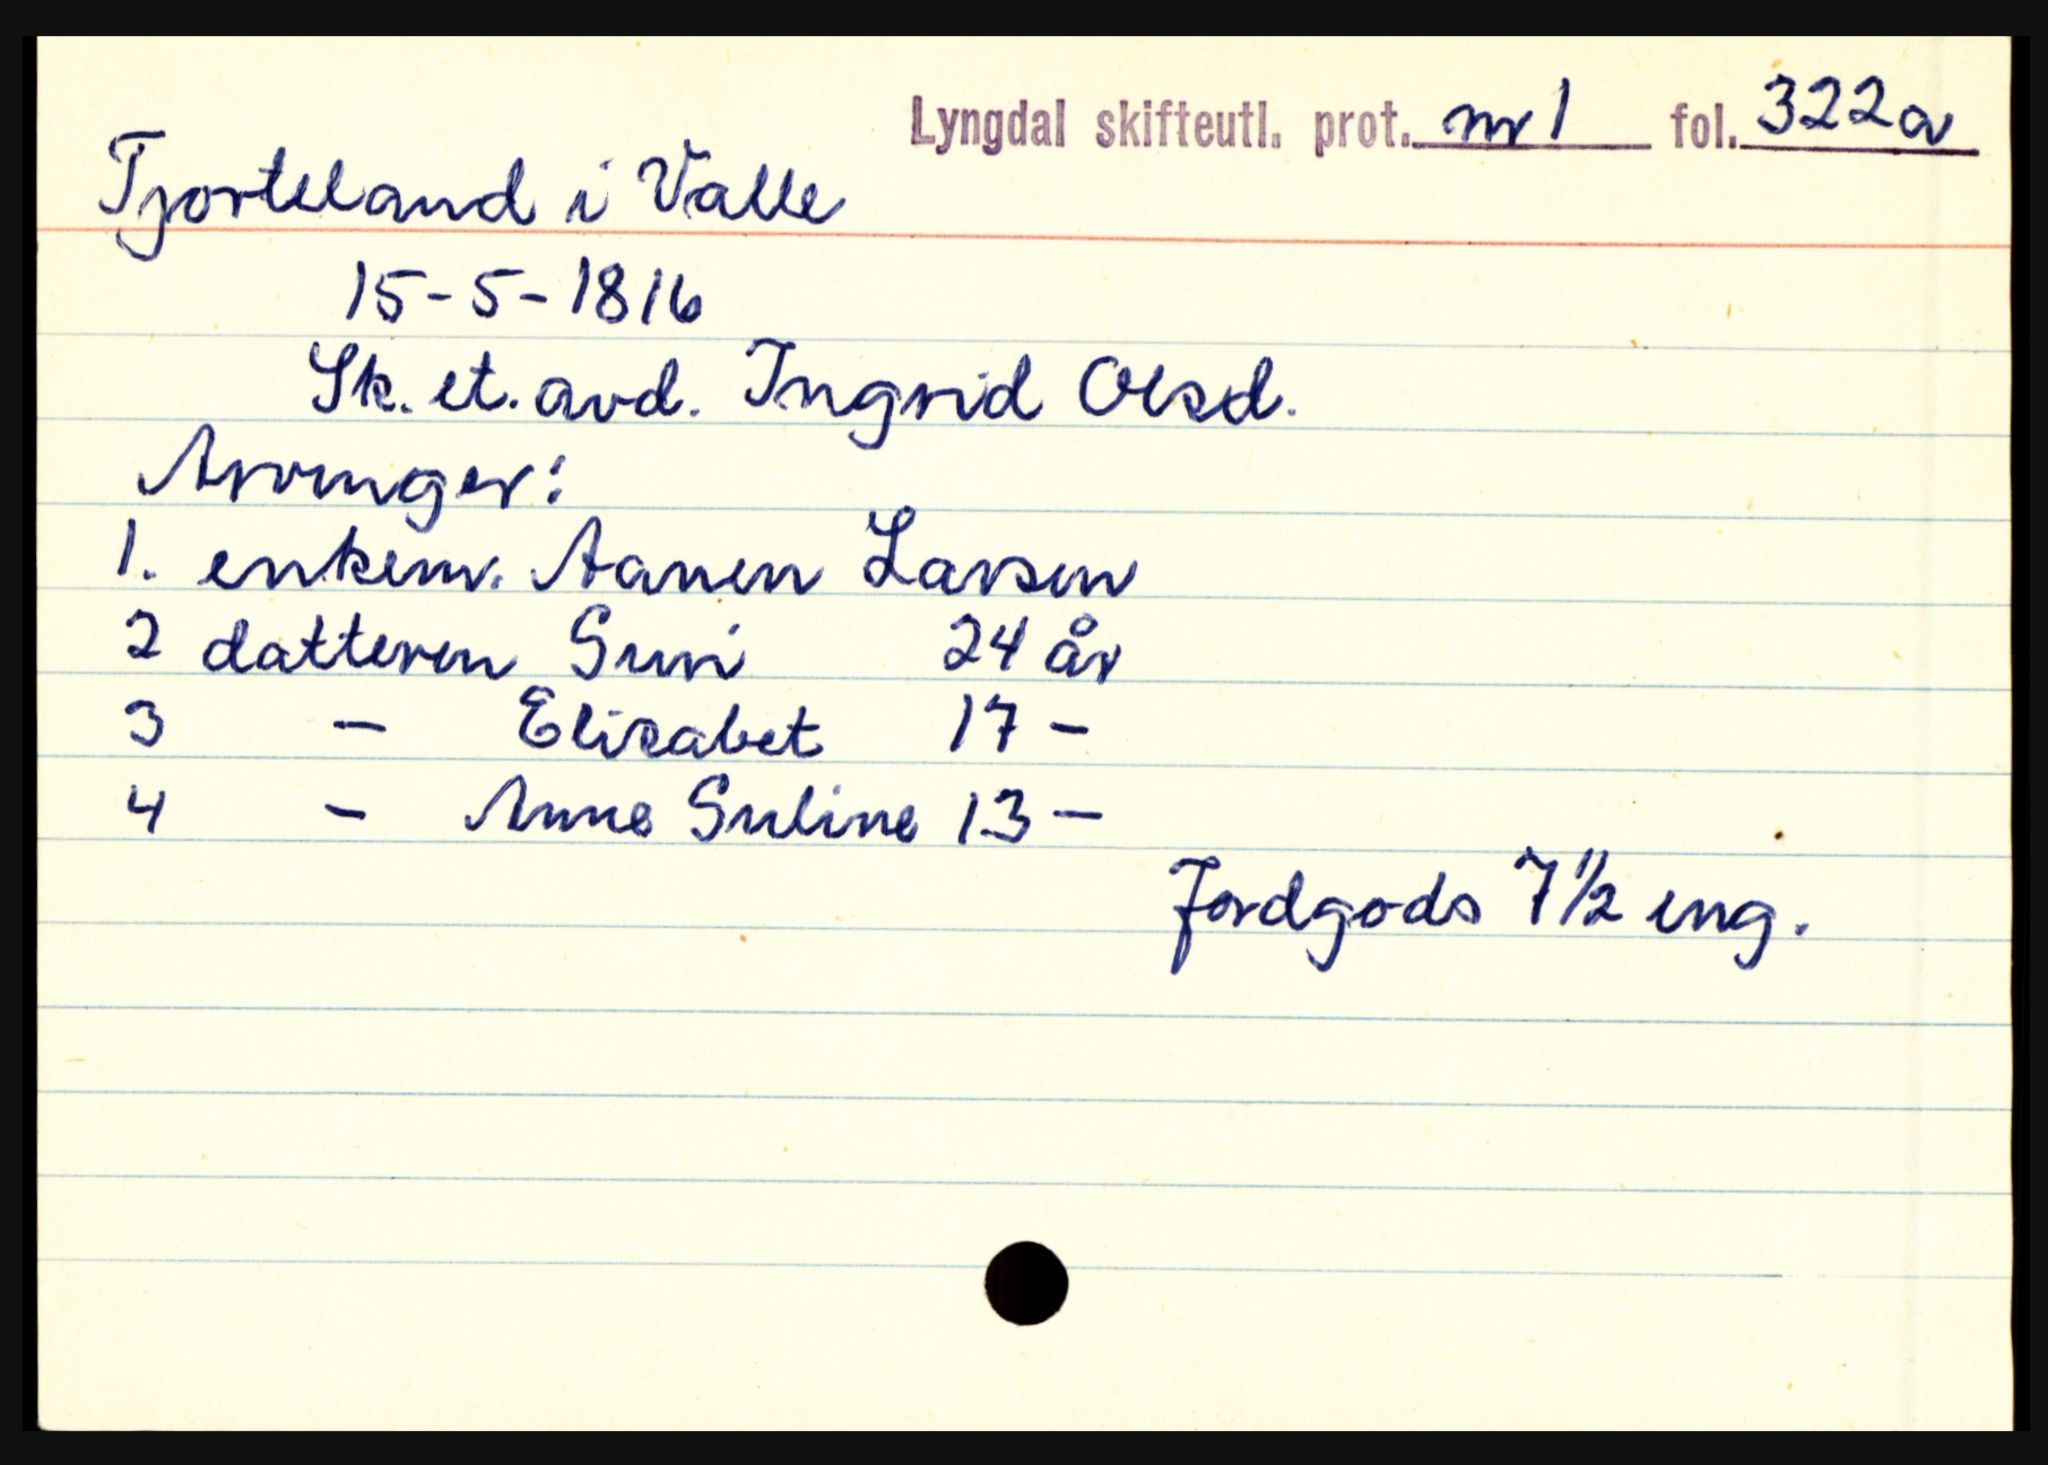 Lyngdal skifteutl. prot. nr 1 fol. 322a
Tjorteland i Valle
15-5-1816
Sk. et. avd. Ingrid Olsd.
Arvinger:
1. enkem. Aanen Larsen
2 datteren Siri 24 år
3 - Elisabet 17 -
4 - Anne Suline 13 -
Jordgods 7 1/2 eng.